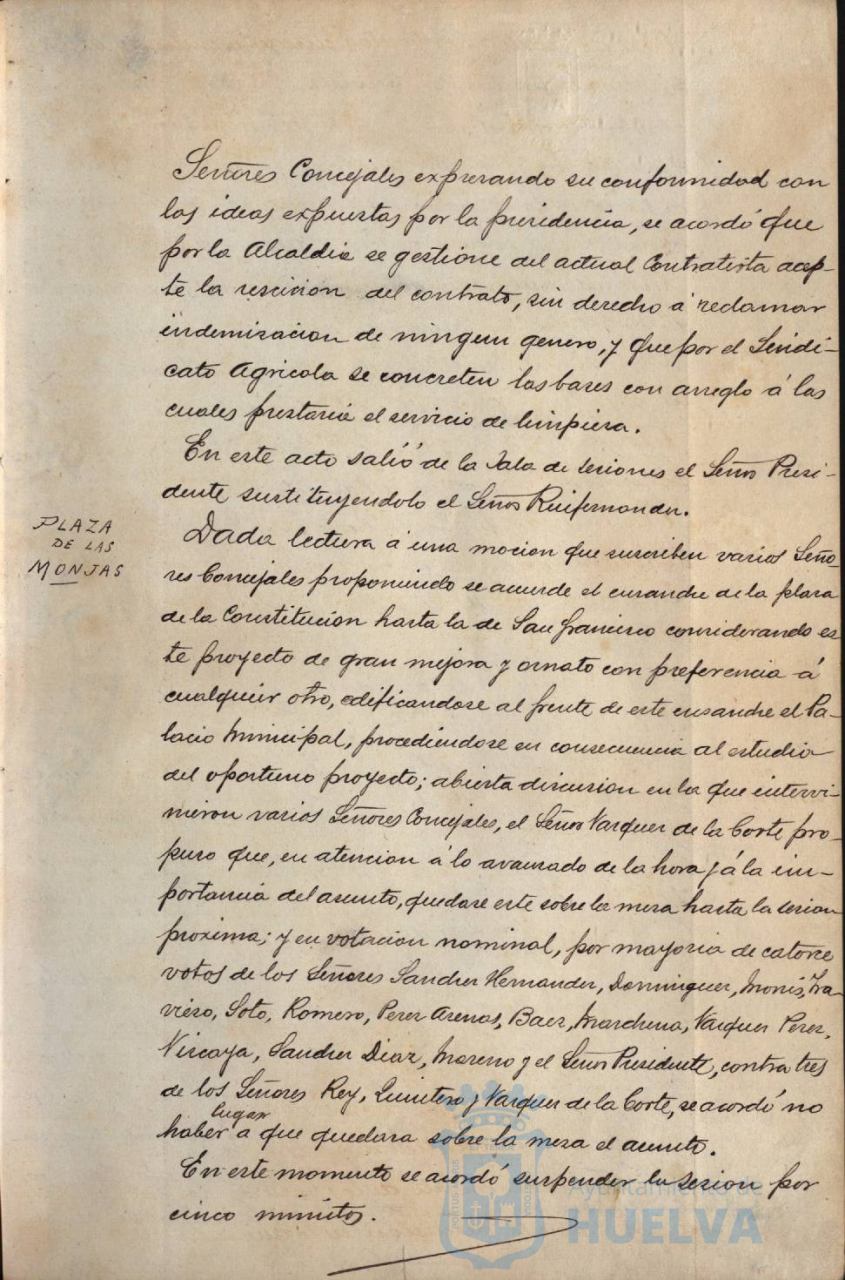 Señores Concejales expresando su conformidad con
las ideas expuestas por la presidencia, se acordó que
por la Alcaldia se gestione del actual Contratista acep-
te la rescision del contrato, sin derecho á reclamar
indemizacion de ningun genero, y que por el Sindi-
cato Agricola se concreten las bases con arreglo á las
cuales prestaria el servicio de limpieza.
En este acto salió de la Sala de sesiones el Señor Presi-
dente sustituyendolo el Señor Ruifernandez.
PLAZA
DE LAS
MONJAS
Dada lectura á una mocion que suscriben varios Seño-
res Concejales proponiendo se acuerde el ensanche de la plaza
de la Constitución hasta la de San Francisco considerando es
te proyecto de gran mejora y ornato con preferencia á
cualquier otro, edificandose al frente de este ensanche el Pa-
lacio Municipal, procediendose en consecuencia al estudio
del oportuno proyecto; abierta discusion en la que intervi-
nieron varios Señores Concejales, el Señor Vazquez de la Corte pro-
puso que, en atencion á lo avanzado de la hora y á la im-
portancia del asunto, quedase este sobre la mesa hasta la sesion
proxima; y en votacion nominal, por mayoria de catorce
votos de los Señores Sanchez Hernandez, Dominguez, Monis, Tra-
vieso, Soto, Romero, Perez Arenas, Baez, Marchena, Vazquez Perez,
Vizcaya, Sanchez Diaz, Moreno y el Señor Presidente, contra tres
de los Señores Rey, Quintero y Vazquez de la Corte, se acordó no
lugar
haber a que quedara sobre la mesa el asunto.
En este momento se acordó suspender la sesion por
cinco minutos.
Ayuntamiento de
HUELVA